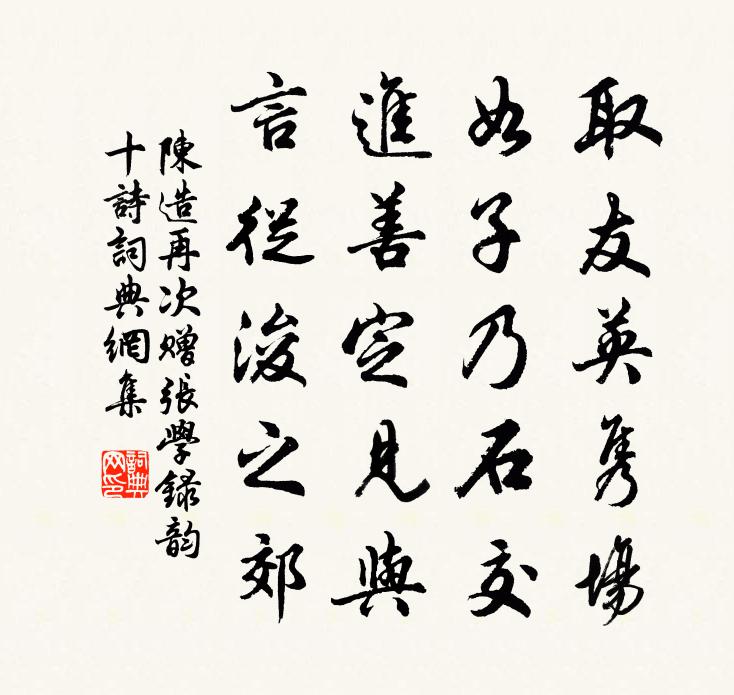 取友英雋場
如子乃石交
進善定見與
言從浚之郊
陳造再次贈張學録韵
十詩詞典網集
詞典網印